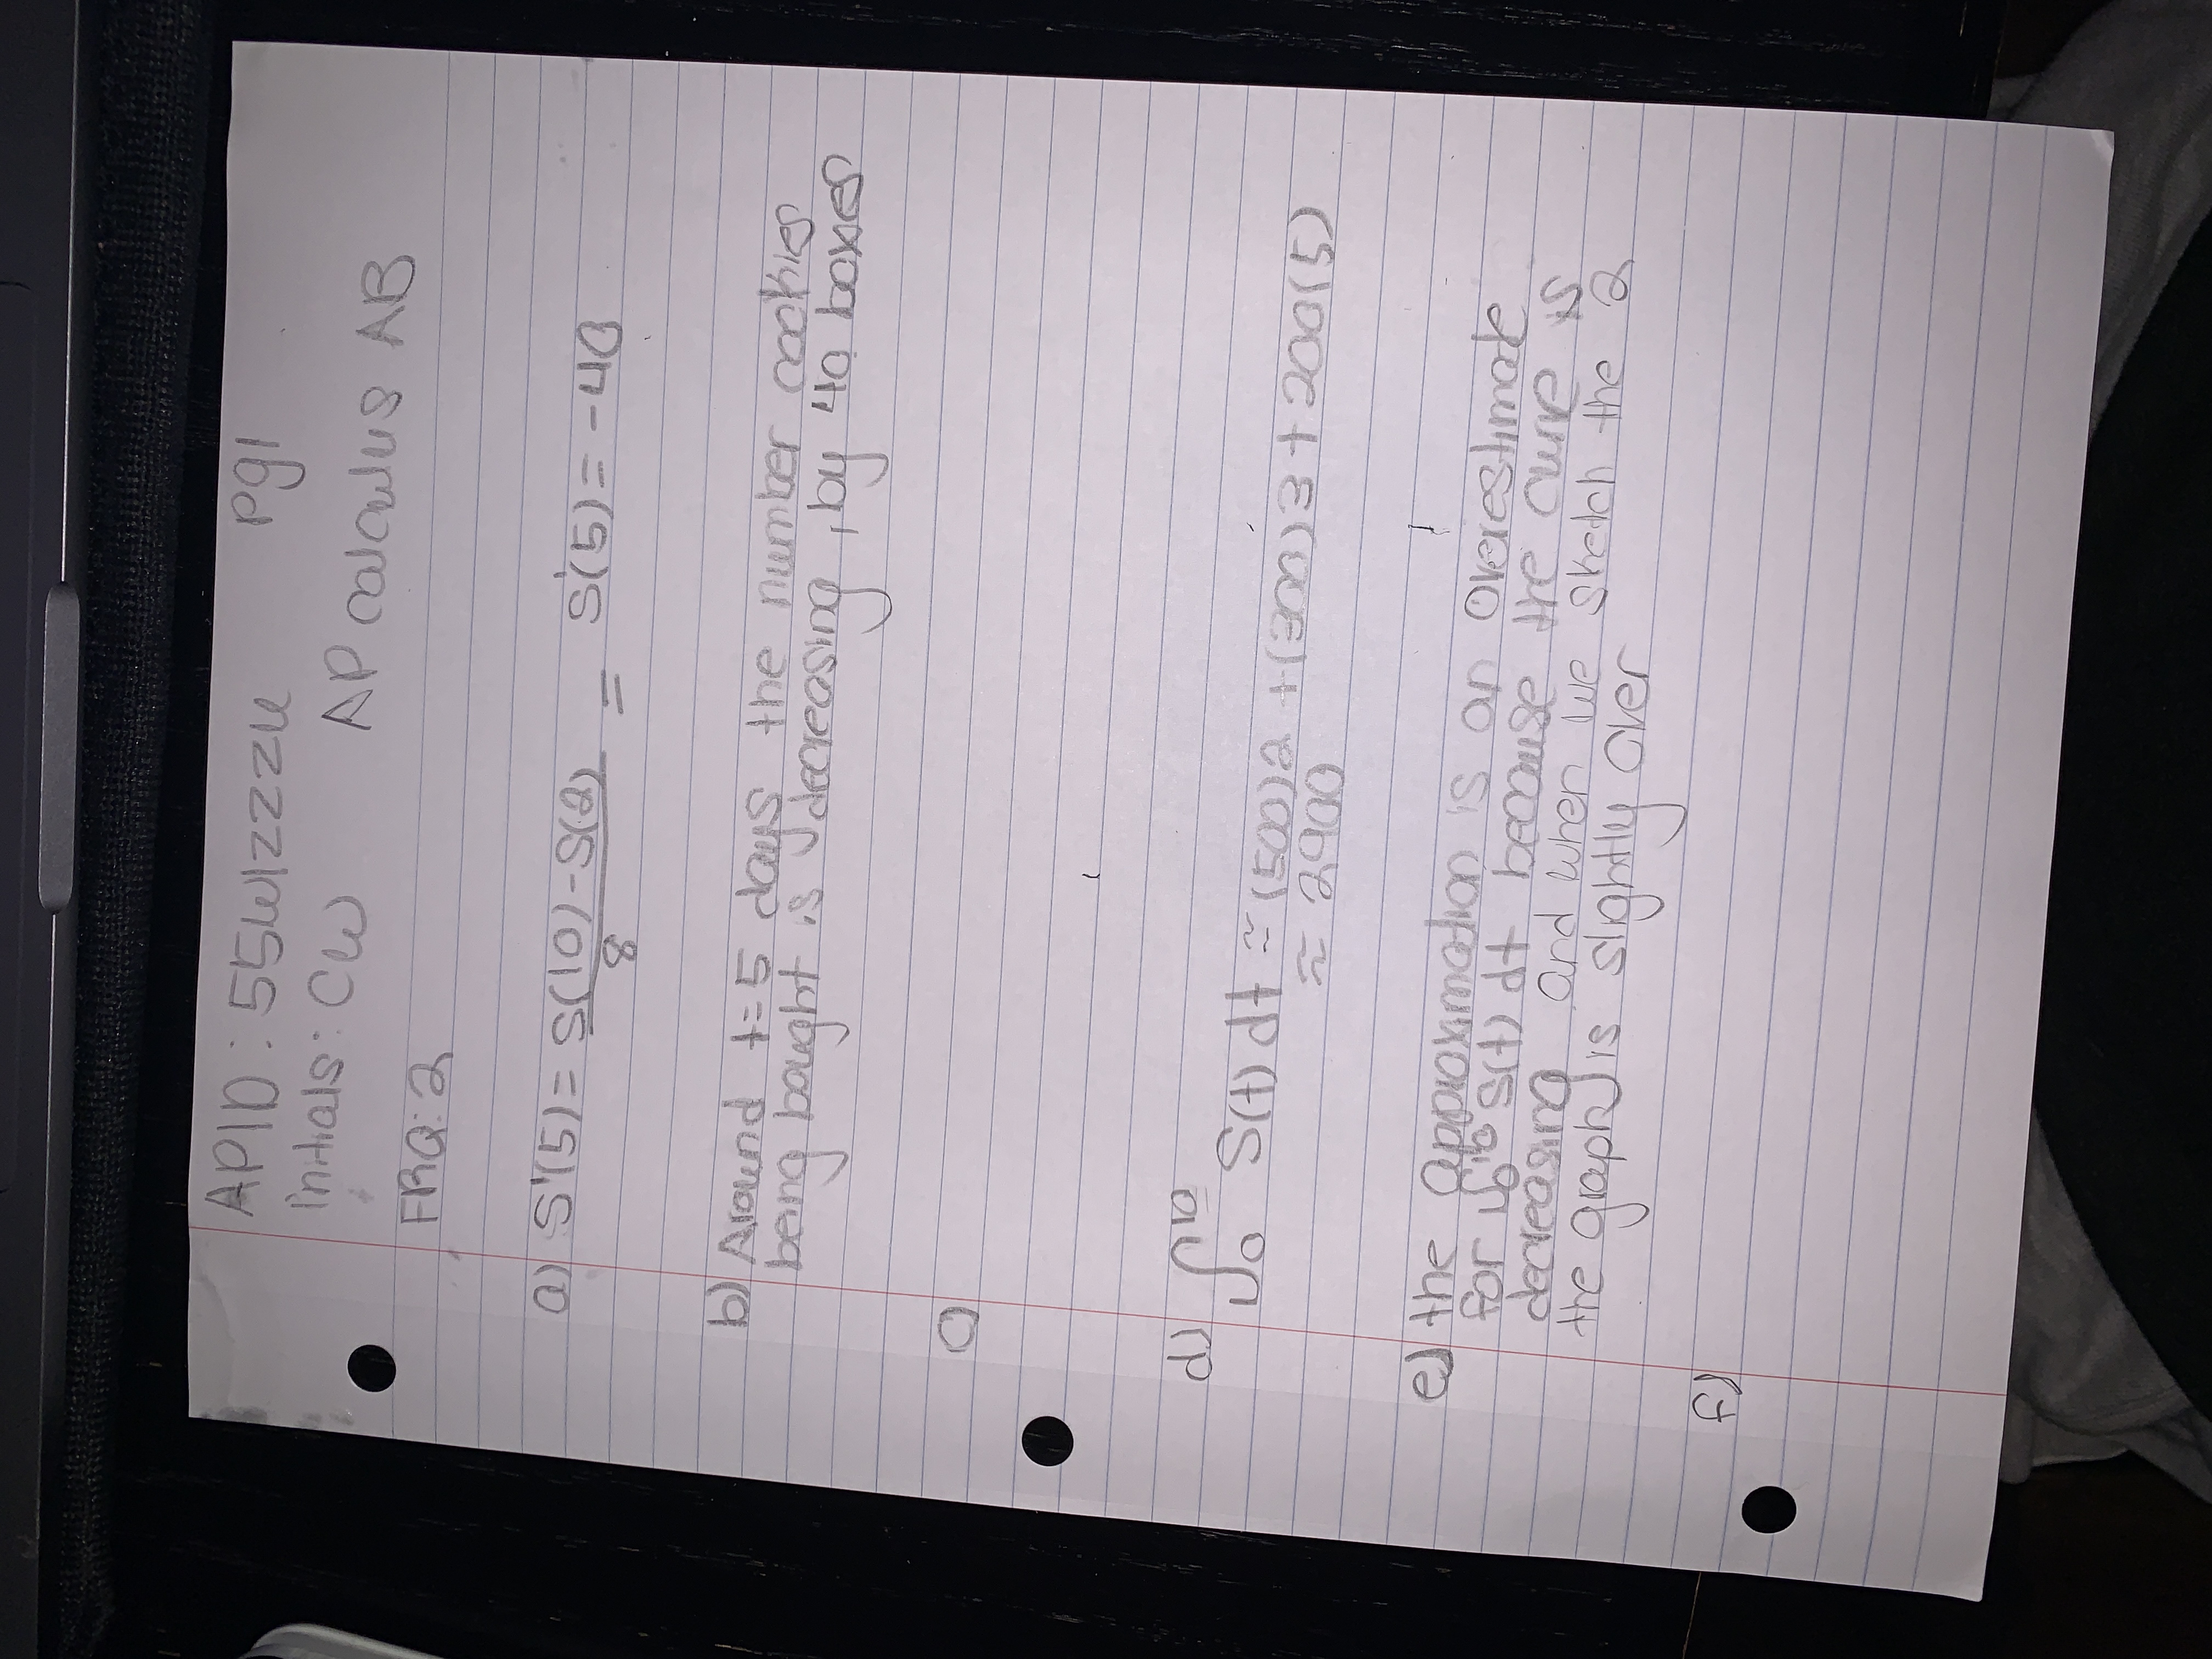 APID: 55W1ZZZU pg1
initials: CW AP calculus AB
FRQ: 2
a) S'(5) = S(10)-S(2) / 8 = S'(5) = -40
b) Around t=5 days the number cookies
being bought is decreasing, by 40 boxes
d) ∫₀¹⁰ S(t) dt ≈ (500)2 + (300)3 + 200(5)
≈ 2900
e) the approximation is an overestimate
for ∫₀¹⁰ S(t) dt because the curve is
decreasing and when we sketch the 2
the graph is slightly over
f)